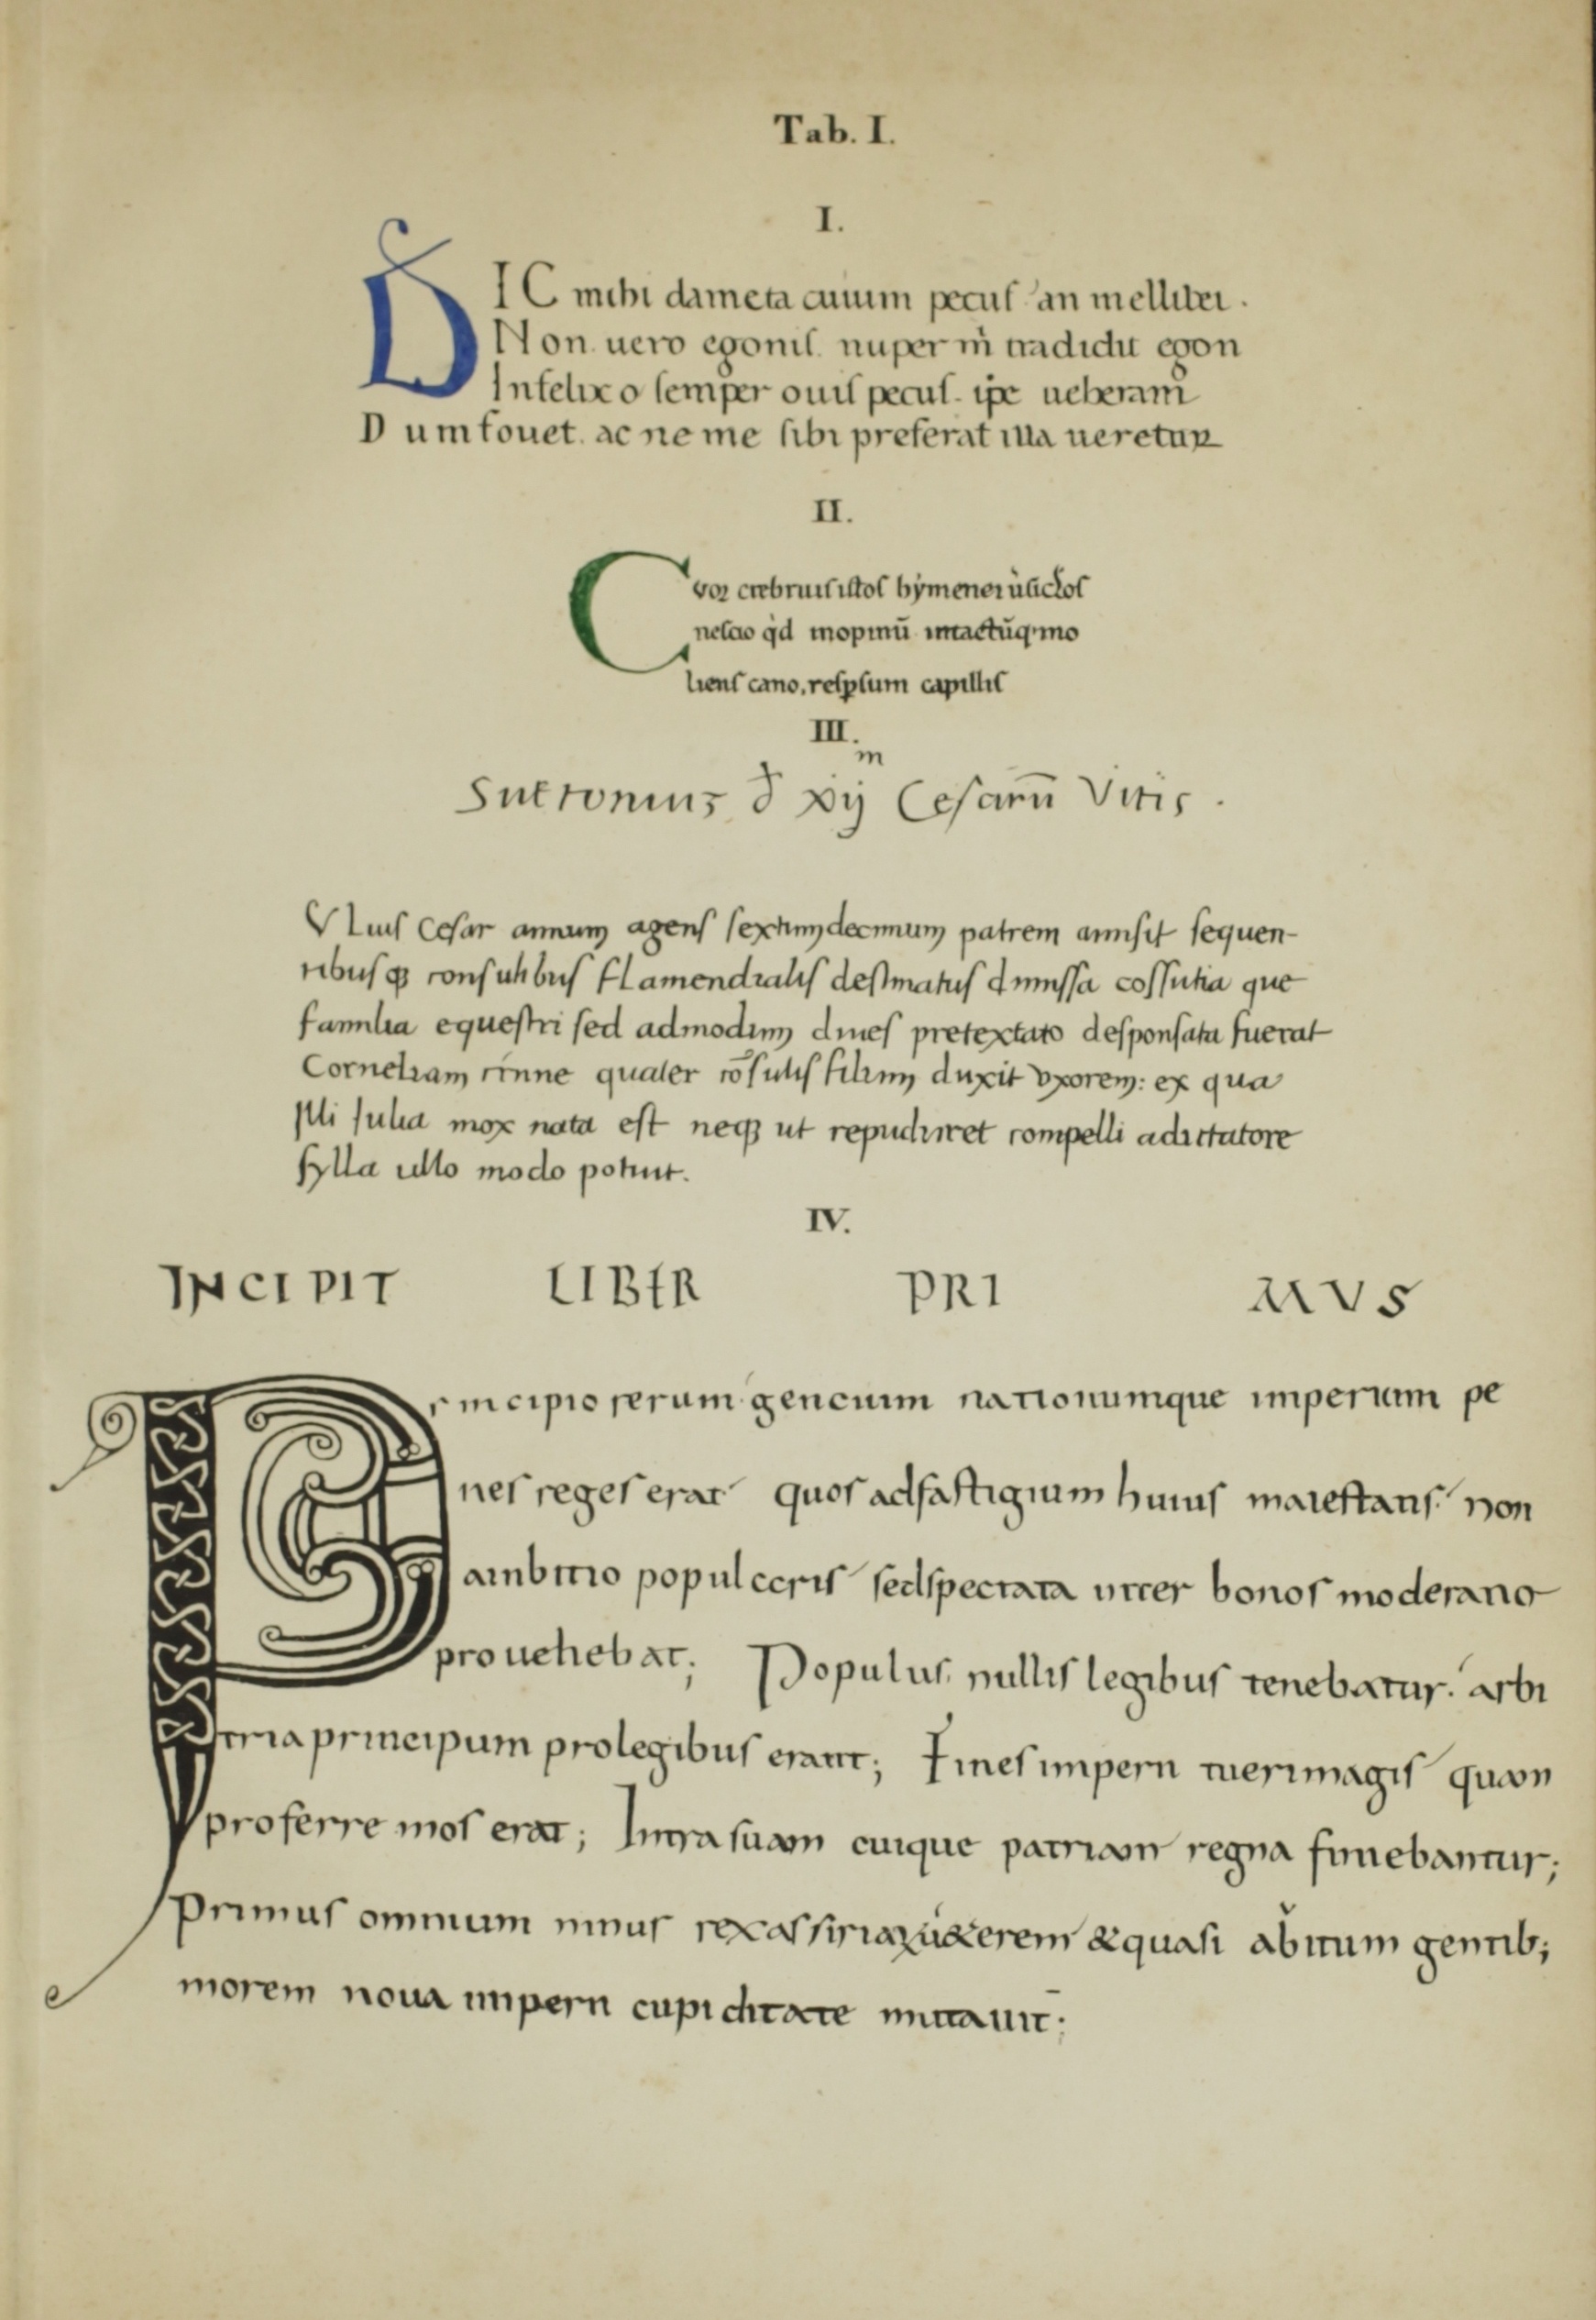 Tab. I.
I.
DIC mihi dameta cuium pecuſ an mellibei .
Non uero egoniſ. nuper m̄ tradidit egon
Infelix o ſemper ouiſ pecuſ. ip̄e ueberam̄
Dum fouet. ac ne me ſibi preferat illa ueretur
II.
crebruiſ iſtoſ hẏmenei
neſcio qd inopinū intactūq;mo
lienſ cano.reſpſum capilliſ
III.
Suetonius d xijm Cesarū Vitis .
VLiuſ Ceſar annum agenſ ſextumdecimum patrem amiſit ſequen-
tibuſqꝫ conſulibuſ flamendialiſ deſtinatuſ dimiſſa coſſutia que
familia equeſtri ſed admodum diueſ pretextato deſponſata fuerat
Corneliam cinne quater cōſuliſ filiam duxit vxorem: ex qua
illi Iulia mox nata eſt neqꝫ ut repudiaret compelli adictatore
ſylla ullo modo potuit.
IV.
INCIPIT LIBER PRI MVS
Principio rerum gencium nationumque imperium pe
neſ regeſ erat quoſ adfaſtigium huiuſ maieſtatiſ. non
ambitio popul ſedſpectata inter bonoſ moderatio
prouehebat; Populuſ nulliſ legibuſ tenebatur. arbi
tria principum prolegibuſ erant; Fineſ imperii tueri magiſ quam
proferre moſ erat; Intra ſuam cuique patriam regna finiebantur;
Primuſ omnium ninuſ rex aſſiriaꝝ ueterem &quaſi abitum gentib;
morem noua imperii cupiditate mutauit;